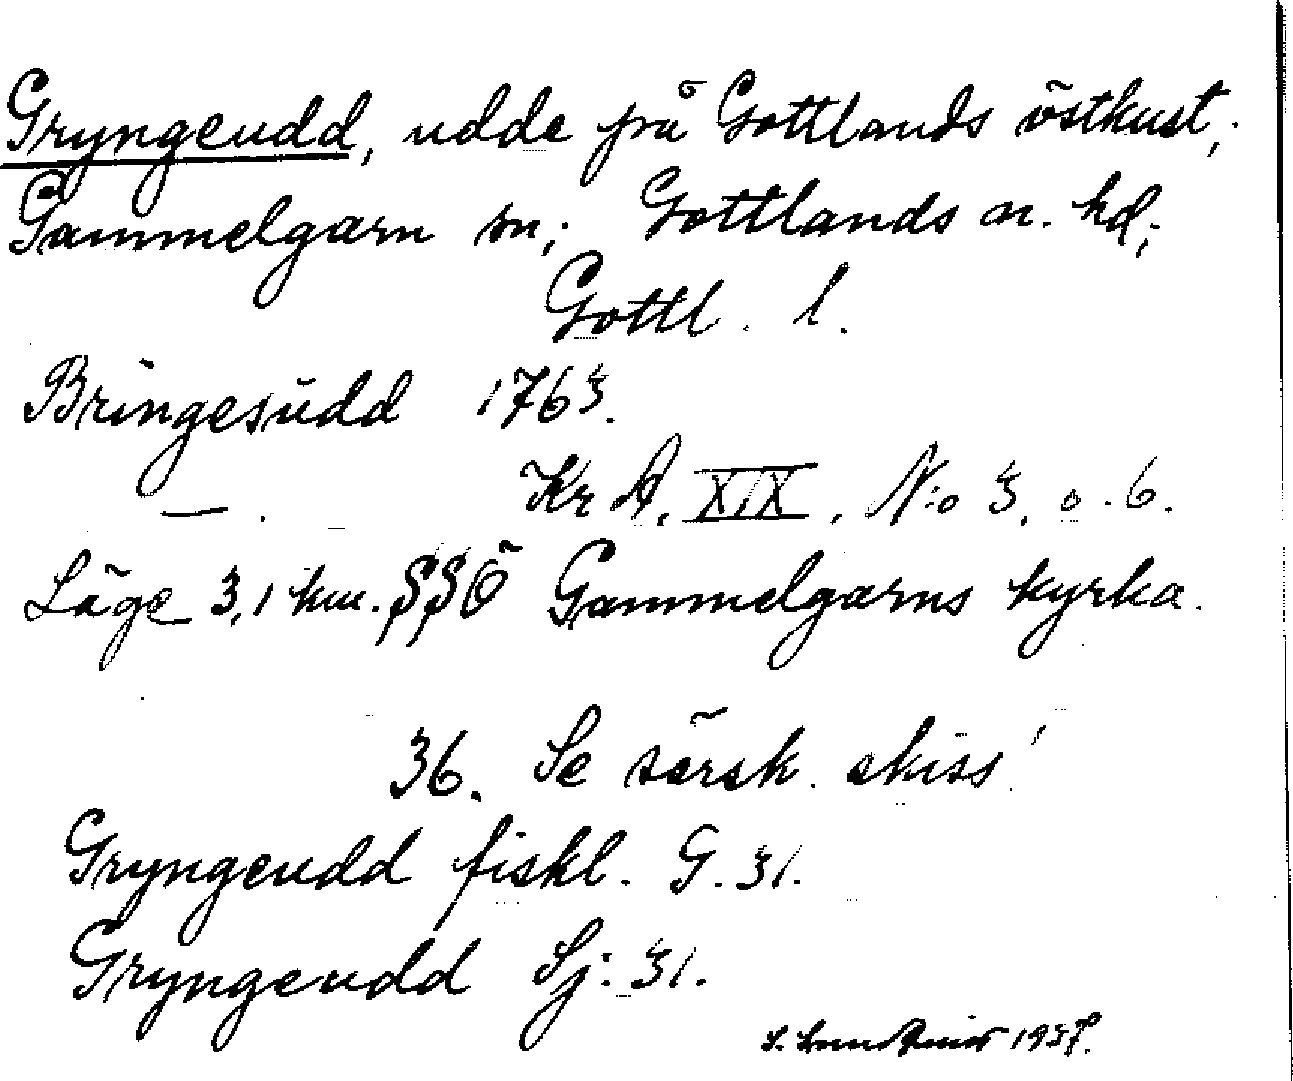 Gryngeudd, udde på Gottlands östkust,
Gammelgarn sn; Gottlands n. hd;
Gottl. l.
Bringesudd 1763.
— . Kr A. XIX, N:o 3, o. 6.
Läge 3,1 km. SSÖ Gammelgarns kyrka.
36. Se särsk. skiss!
Gryngeudd fiskl. G. 31.
Gryngeudd Sj: 31.
S. 1937.